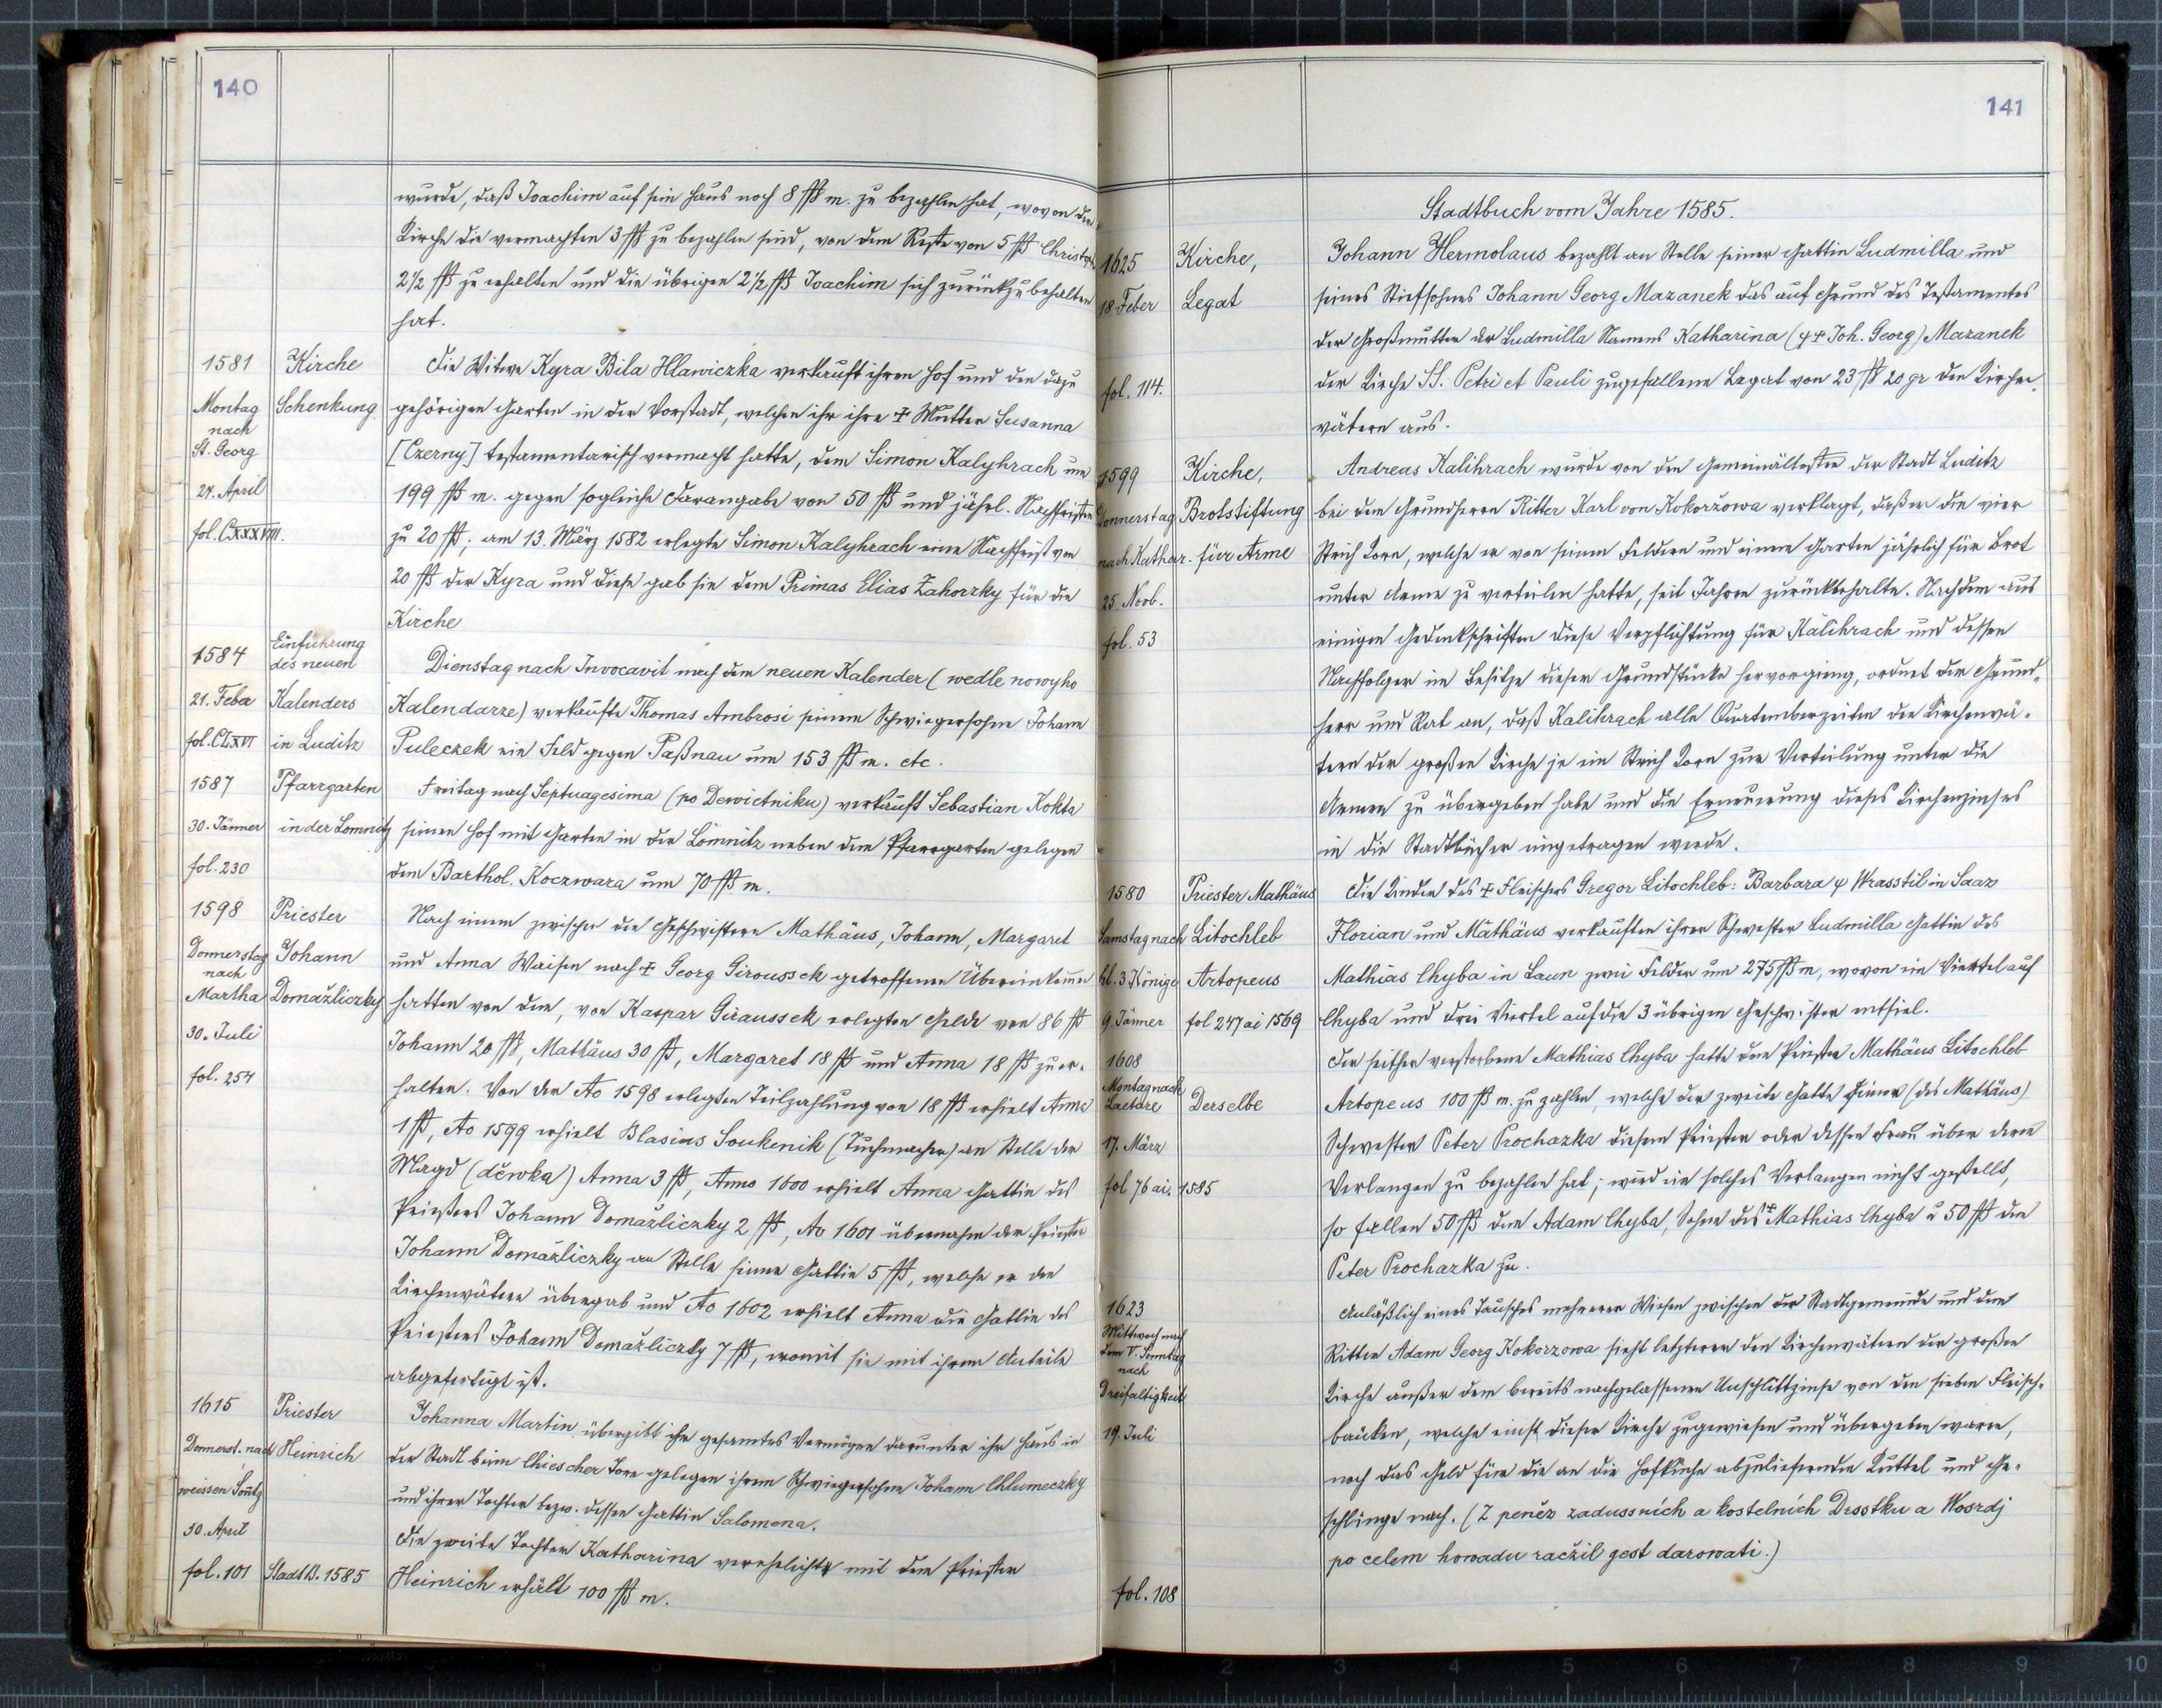 140
wurde, daß Joachim auf sein Haus noch 8 ßß m. zu bezahlen hat, wovon der
Kirche die vermachten 3 ßß zu bezahlen sind, von dem Reste von 5 ßß Christoph
2½ ßß zu erhalten und die übrigen 2½ ßß Joachim sich zurückzubehalten
hat.
1581 Kirche Die Witwe Kyra Bila Hlawiczka verkauft ihren Hof und den dazu
Montag Schenkung gehörigen Garten in der Vorstadt, welchen ihr ihre ✝ Mutter Susanna
nach
St. Georg [Czerny] testamentarisch vermacht hatte, dem Simon Kalyhrach um
24. April 199 ßß m. gegen sogleiche Darangabe von 50 ßß und jährl. Nachfristen
fol. CXXXVIII. zu 20 ßß; am 13. März 1582 erlegte Simon Kalyhrach eine Nachfrist von
20 ßß der Kyra und diese gab sie dem Primas Elias Žahorzky für die
Kirche
1584 Einführung
des neuen Dienstag nach Invocavit nach dem neuen Kalender (wedle nowyho
21. Feber Kalenders Kalendarze) verkaufte Thomas Ambrosi seinem Schwiegersohne Johann
fol. CLXVI in Luditz Puleczek ein Feld gegen Paßnau um 153 ßß m. etc.
1587 Pfarrgarten Freitag nach Septuagesima (po Dewictniku) verkauft Sebastian Kokta
30. Jänner in der Lomnitz seinen Hof mit Garten in der Lomnitz neben dem Pfarrgarten gelegen
fol. 230 dem Barthol. Koczwara um 70 ßß m.
1598 Priester Nach einem zwischen den Geschwistern Mathäus, Johann, Margaret
Donnerstag Johann und Anna Waisen nach ✝ Georg Giroussek getroffenen Übereinkommen
nach
Martha Domažliczky hatten von dem, von Kaspar Giraussek erlegten Gelde von 86 ßß
30. Juli Johann 20 ßß, Mathäus 30 ßß, Margaret 18 ßß und Anna 18 ßß zu er-
fol. 254 halten. Von der Ao 1598 erlegten Teilzahlung von 18 ßß erhielt Anna
1 ßß, Ao 1599 erhielt Blasius Soukenik (Tuchmacher) an Stelle der
Magd (děwka) Anna 3 ßß, Anno 1600 erhielt Anna Gattin des
Priesters Johann Domažliczky 2 ßß, Ao 1601 übernahm der Priester
Johann Domažliczky an Stelle seiner Gattin 5 ßß, welche er den
Kirchenvätern übergab und Ao 1602 erhielt Anna die Gattin des
Priesters Johann Domažliczky 7 ßß, womit sie mit ihrem Anteile
abgefertigt ist.
1615 Priester Johanna Martin übergibt ihr gesamtes Vermögen darunter ihr Haus in
Donnerst. nach Heinrich der Stadt beim Chiescher Tore gelegen ihrem Schwiegersohne Johann Chlumeczky
weissen Sontg und ihrer Tochter bezw. dessen Gattin Salomena.
30. April Die zweite Tochter Katharina verehelichte mit dem Priester
fol. 101 StadtB. 1585 Heinrich erhält 100 ßß m.
141
Stadtbuch vom Jahre 1585.
1625 Kirche, Johann Hermolaus bezahlt an Stelle seiner Gattin Ludmilla und
18 Feber Legat seines Stiefsohnes Johann Georg Mazanek das auf Grund des Testamentes
der Großmutter der Ludmilla Namens Katharina (ψ ✝ Joh. Georg) Mazanek
fol. 114. der Kirche SS. Petri et Pauli zugefallene Legat von 23 ßß 20 gr den Kirchen-
vätern aus.
1599 Kirche, Andreas Kalihrach wurde von den Gemeinältesten der Stadt Luditz
Donnerstag Brotstiftung bei dem Grundherrn Ritter Karl von Kokoržowa verklagt, daß er die vier
nach Kathar. für Arme Strich Korn, welche er von seinen Feldern und einem Garten jährlich für Brot
25. Novb. unter Arme zu verteilen hatte, seit Jahren zurückbehalte. Nachdem aus
fol. 53 einigen Gedenkschriften diese Verpflichtung für Kalihrach und dessen
Nachfolger im Besitze dieser Grundstücke hervorgieng, ordnet der Grund-
herr und Rat an, daß Kalihrach alle Quatemberzeiten den Kirchenvä-
tern der großen Kirche je ein Strich Korn zur Verteilung unter die
Armen zu übergeben habe und die Erneuerung dieses Kirchenzinses
in die Stadtbücher eingetragen werde.
1580 Priester Mathäus Die Kinder des ✝ Fleischers Gregor Litochleb: Barbara ψ Wrasstil in Saaz
Samstag nach Litochleb Florian und Mathäus verkauften ihrer Schwester Ludmilla Gattin des
hl. 3 Könige Artopeus Mathias Chyba in Laun zwei Felder um 275 ßß m, wovon ein Viertel auf
9. Jänner fol 247 ai 1569 Chyba und drei Viertel auf die 3 übrigen Geschwister entfiel.
1608 Der seither verstorbene Mathias Chyba hatte dem Priester Mathäus Litochleb
Montag nach
Laetare Derselbe Artopeus 100 ßß m. zu zahlen, welche der zweite Gatte seiner (des Mathäus)
17. März Schwester Peter Prochazka diesem Priester oder dessen Frau über deren
fol 76 ai. 1585 Verlangen zu bezahlen hat; wird ein solches Verlangen nicht gestellt,
so fallen 50 ßß dem Adam Chyba, Sohne des ✝ Mathias Chyba u 50 ßß dem
Peter Prochazka zu.
1623 Anläßlich eines Tausches mehrerer Wiesen zwischen der Stadtgemeinde und dem
Mittwoch nach
dem V. Sonntag Ritter Adam Georg Kokorzowa sieht letzterer den Kirchenvätern der großen
nach
Dreifaltigkeit Kirche außer dem bereits nachgelassenen Unschlittzinse von den sieben Fleisch-
19. Juli bänken, welche einst dieser Kirche zugewiesen und übergeben waren,
noch das Geld für die an die Hofküche abzuliefernden Kuttel und Ge-
schlinge nach. (Z peněz zadussních a kostelních Drsstku a Wosrdj
po celem howadu račzil gest darowati.)
fol. 108